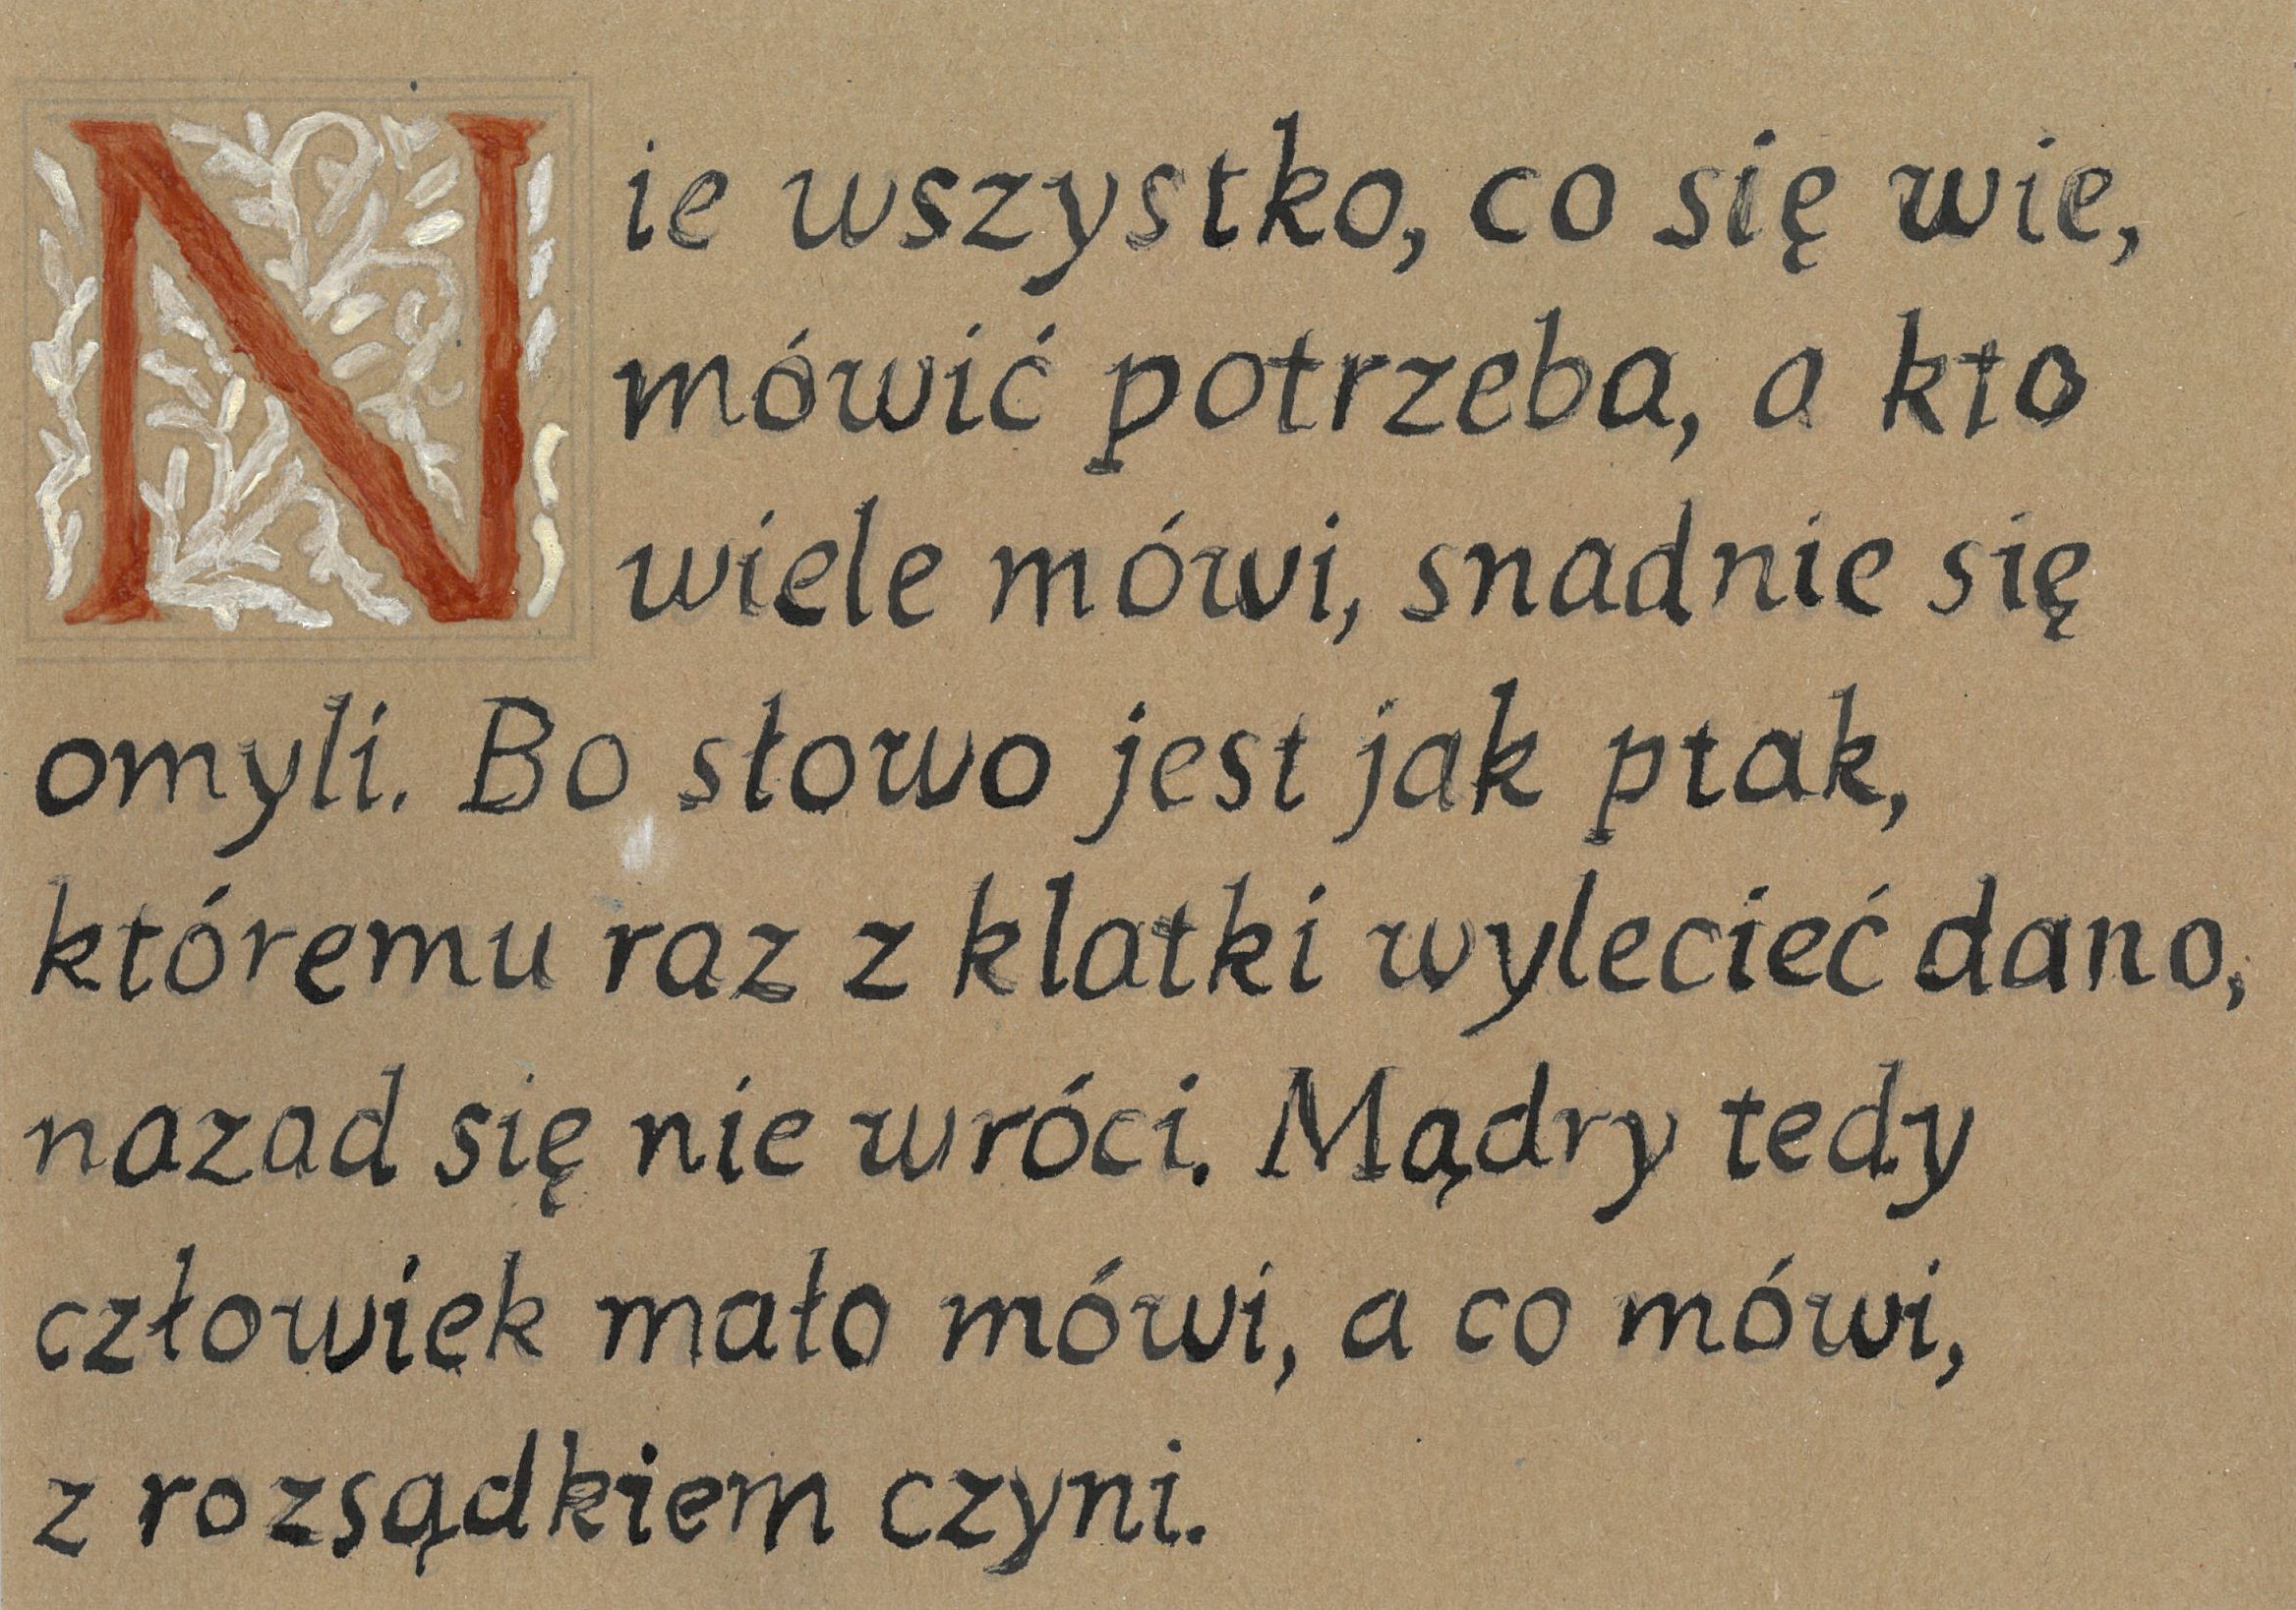 Nie wszystko, co się wie,
mówić potrzeba, a kto
wiele mówi, snadnie się
omyli. Bo słowo jest jak ptak,
któremu raz z klatki wylecieć dano,
nazad się nie wróci. Mądry tedy
człowiek mało mówi, a co mówi,
z rozsądkiem czyni.